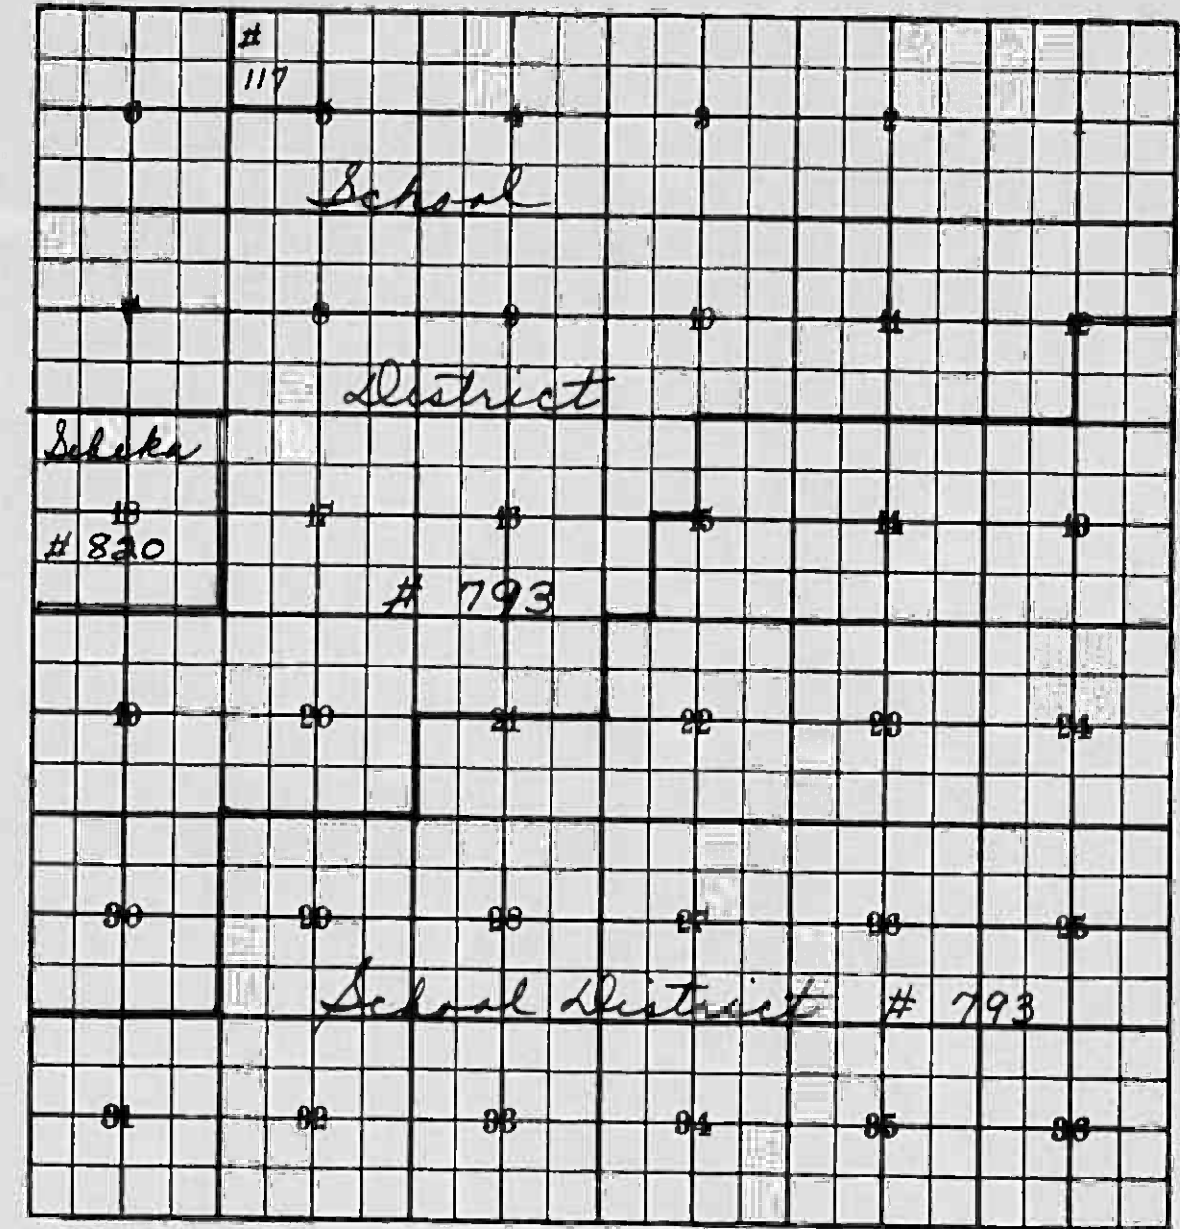 #
117
6 5 4 3 2 1
School
7 8 9 10 11 12
District
Sebeka
18 17 16 15 14 13
# 820
# 793
19 20 21 22 23 24
30 29 28 27 26 25
School District # 793
31 32 33 34 35 36